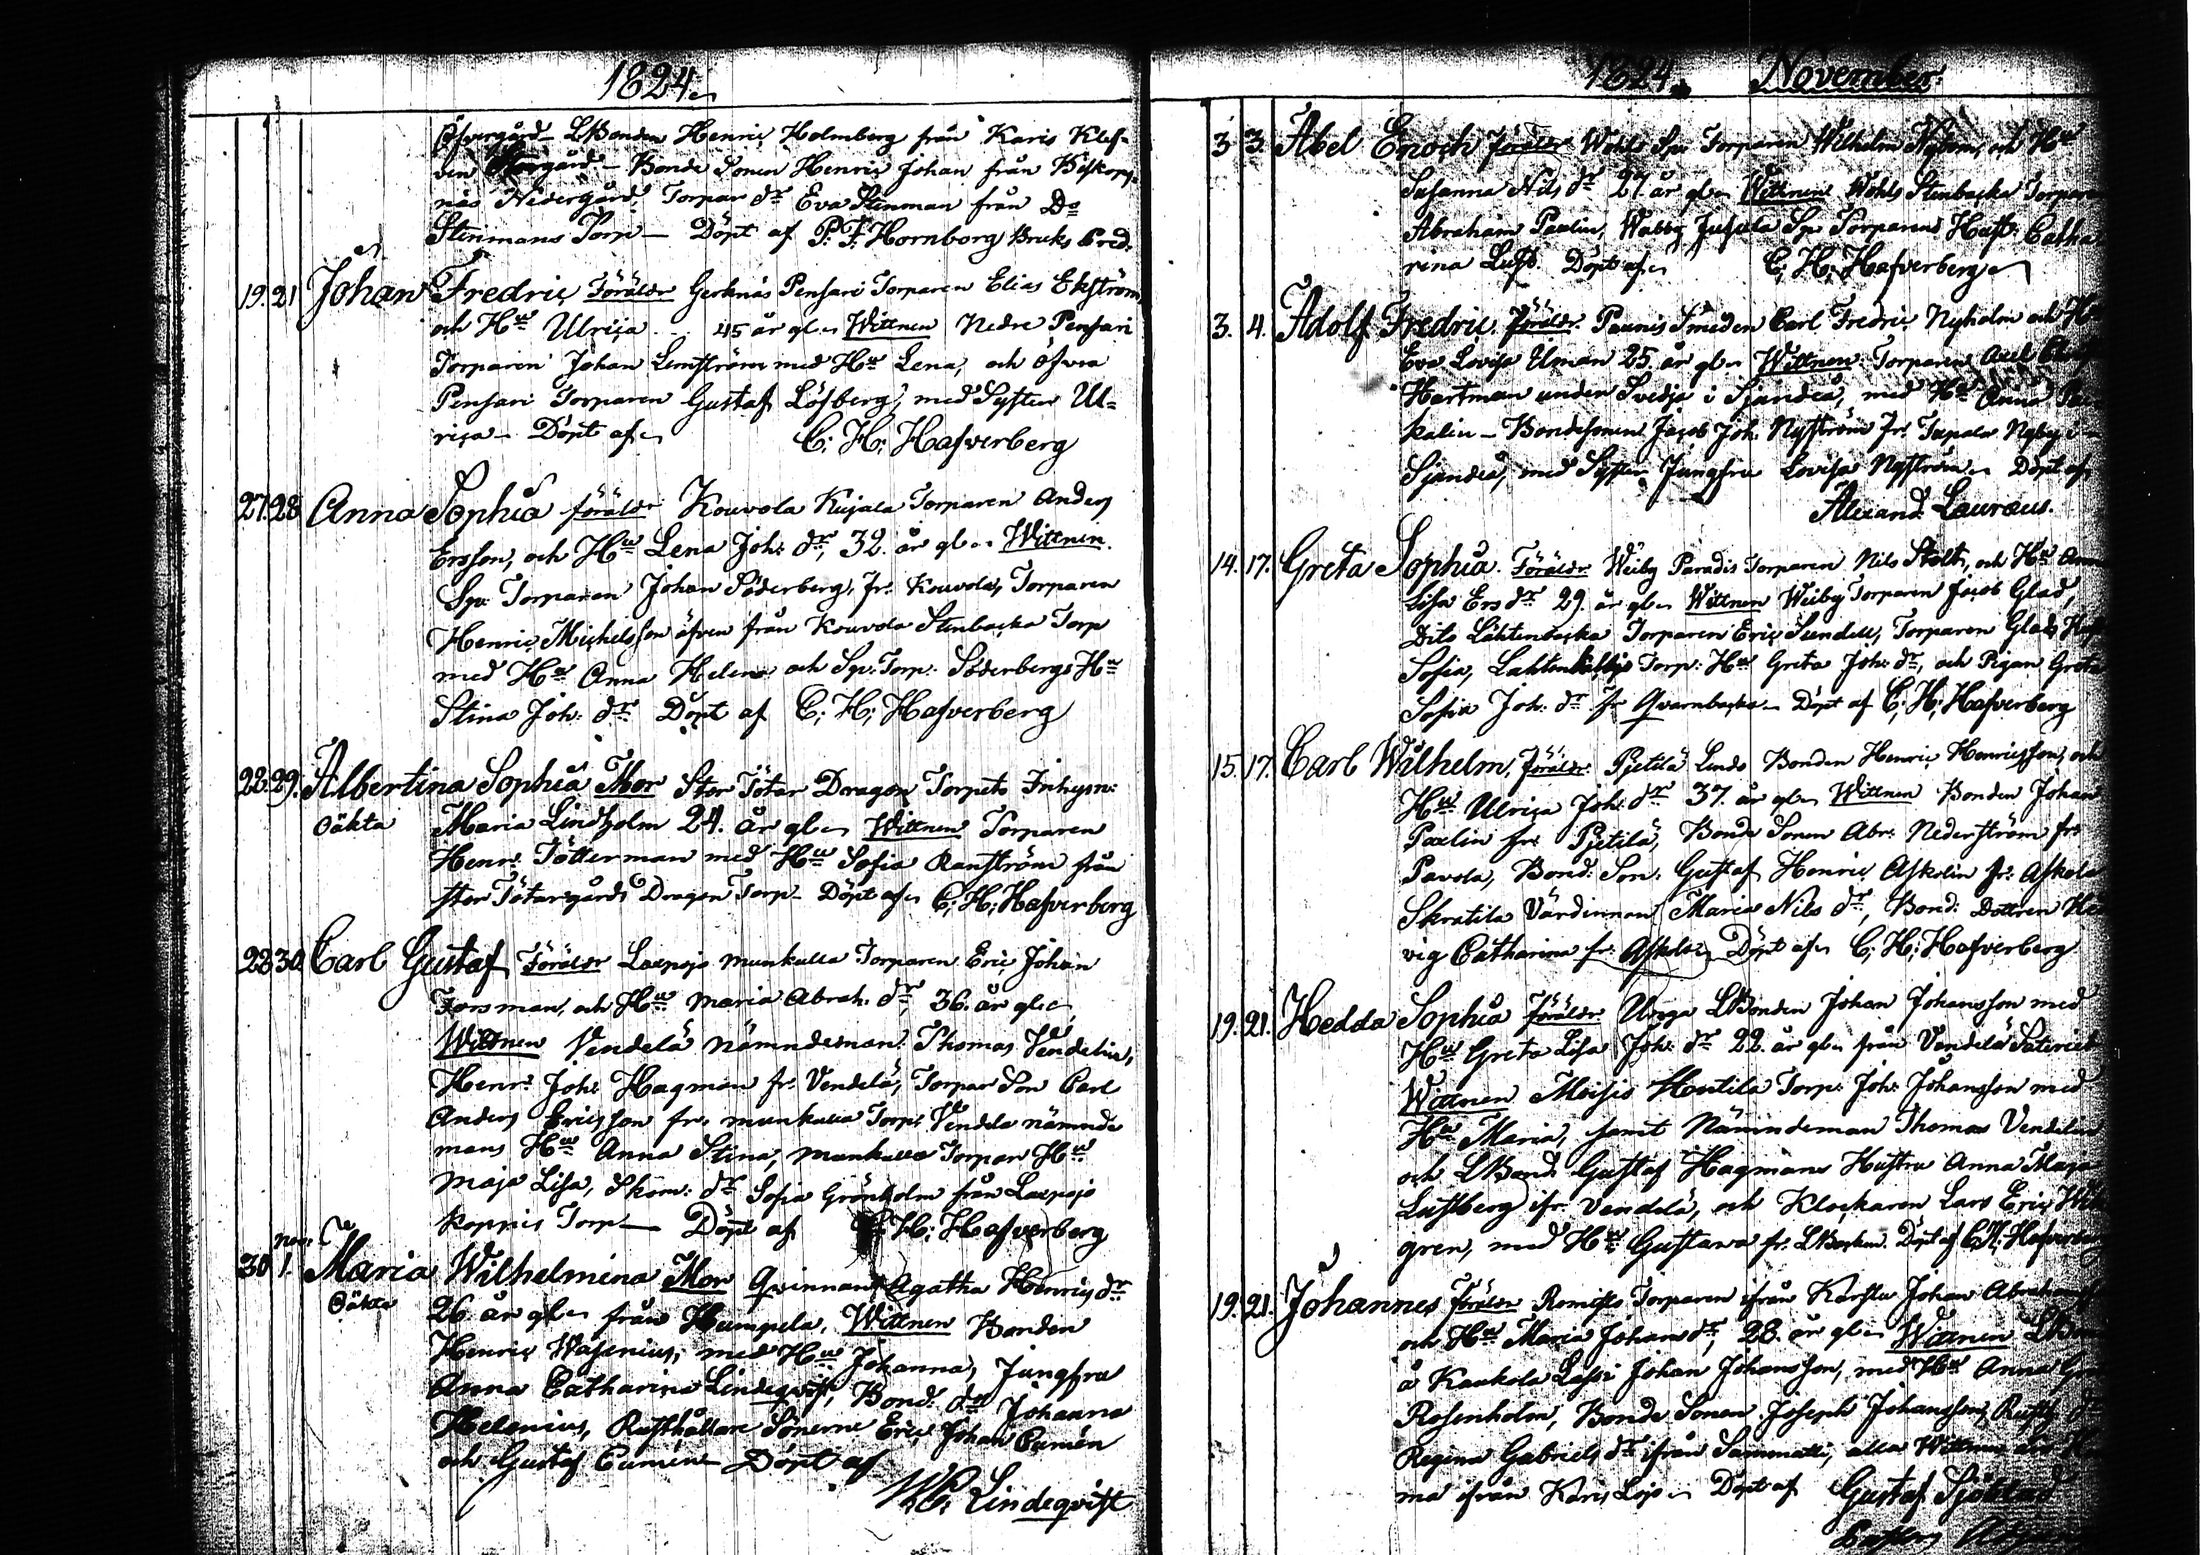 1824.
Öfvergård LBonden Henric Holmberg från Karis Klef-
ven Bonde Sonen Henric Johan från Biskops-
näs Nedergård, Torpar dr Eva Stenman från Do
Stenmans Torp — Döpt af P. F. Hornborg Bruks Pred.
19. 21 Johan Fredric Föräldr Gerknäs Pensari Torparen Elias Ekström
och Hu Ulrica 45 år gl. Wittnen Nedre Pensari
Torparen Johan Lemström med Hu Lena, och öfvra
Pensari Torparen Gustaf Löfberg, med Syster Ul-
rica — Döpt af C. H. Hafverberg
27. 28. Anna Sophia föräldr Kouvola Kujala Torparen Anders
Ersson, och Hu Lena Joh. dr, 32. år gl. Wittnen
Sp. Torparen Johan Söderberg, fr. Kouvola, Torparen
Henric Michelsson äfven från Kouvola Stenbacka Torp
med Hu Anna Helena och Sp. Torp. Söderbergs Hu
Stina Joh. dr. Döpt af C. H. Hafverberg
28. 29. Albertina Sophia Mor Stor Tötar Dragon Torpets Inhysn.
Oäkta Maria Lindholm 24. år gl. Wittnen Torparen
Henr. Tötterman med Hu Sofia Ranström från
Stor Tötargårds Dragon Torp — Döpt af C. H. Hafverberg
28 30. Carl Gustaf Föräldr Laxpojo munkulla Torparen Eric Johan
Forsman, och Hu Maria Abrah. dr, 36. år gl.
Wittnen Vendelä nämndeman Thomas Vendelin,
Henr. Joh. Hagman fr. Vendelä, Torpar Son Carl
Anders Ericsson fr. munkulla Torp, Vendela nämnde
mans Hu Anna Stina, munkulla Torpar Hu
Maja Lisa, Skom. dr Sofia Grönholm från Laxpojo
Koppis Torp — Döpt af H. Hafverberg
Nov.
30 1. Maria Wilhelmina Mor Qvinnan Agatha Henrics dr
Oäkta 26 år gl. från Humpela, Wittnen Bonden
Henric Wasenius, med Hu Johanna, Jungfru
Anna Catharina Lindeqvist, Bond. dr Johanna
Helenius, Rusthållare Sönerne Eric Johan Cumén
och Gustaf Cumén — Döpt af
Lindeqvist
1824. November
3 3. Abel Enoch föräldr Wohls Sp. Torparen Wilhelm Nybom, och Hu
Susanna Nils dr 27 år gl. Wittnen Wohls Stenbacka Torparen
Abraham Paulin, Wabby Jusula Sp. Torparens Hust. Catha
rina Lust. Döpt af C. H. Hafverberg
3. 4. Adolf Fredric. föräldr Paunis Smeden Carl Fredric Nyholm och Hu
Eva Lovisa Ulman 25. år gl. Wittnen Torparen Axel
Hartman under Svidja i Sjundeå, med Hu Anna
kalin — Bondesonen Jacob Joh. Nyström fr. Tupala Nyby i
Sjundeå, med Syster Jungfru Lovisa Nyström. Döpt af
Alexand. Lauræus.
14. 17. Greta Sophia. Föräldr Weiby Paradis Torparen Nils Stolt, och Hu Anna
Lisa Ers dr 29. år gl. Wittnen Weiby Torparen Jacob Glad,
Dito Lähtenbacka Torparen Eric Sundell, Torparen Glads
Sofia, Torp. Hu Greta Joh. dr, och Pigan Greta
Sofia Joh. dr fr Qvarnbacka — Döpt af C. H. Hafverberg
15. 17. Carl Wilhelm, föräldr Pietilä Lindo Bonden Henric Henricsson, och
Hu Ulrica Joh. dr 37. år gl. Wittnen Bonden Johan
Paulin fr. Pietilä, Bonde Sonen Abr. Nederström fr.
Pavola, Bond. Son. Gustaf Henric Askolin fr. Askola
Skratila Värdinnan Maria Nils dr, Bond. Dottren Hed
vig Catharina fr. Askola Döpt af C. H. Hafverberg
19. 21. Hedda Sophia föräldr Unga LBonden Johan Johansson med
Hu Greta Lisa Joh. dr 22. år gl. från Vendelä
Wittnen Moisio Hentila Torp. Joh. Johansson med
Hu Maria, samt Nämndeman Thomas Vendelin
och LBond. Gustaf Hagmans Hustru Anna Maja
Lustberg ifr. Vendelä, och Klockaren Lars Eric
gren, med Hu Gustava fr. Döpt af C. H. Hafverberg
19. 21. Johannes föräldr Torparen ifrån Johan Abrahamss
och Hu Maria Johans dr, 28. år gl. Wittnen
å Kaukola Lassi Johan Johansson, med Hu Anna
Rosenholm, Bonde Sonen Joseph Johansson, Rusth. dr
Regina Gabriels dr ifrån Sammatti, alla Wittnen
ma ifrån Karis Lojo. Döpt af Gustaf